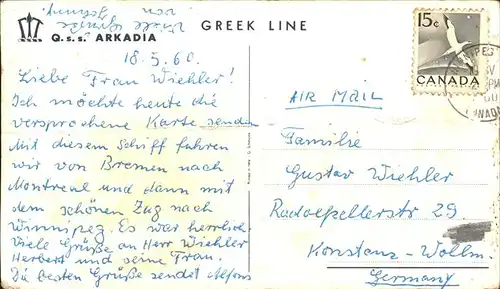 GREEK LINE
Q.s.s. ARKADIA
Viele Grüße
von
18.5.60.
Liebe Frau Wiehler!
Ich möchte heute die
versprochene Karte senden
Mit diesem Schiff fahren
wir von Bremen nach
Montreal und dann mit
dem schönen Zug nach
Winnipeg. Es war herrlich.
Viele Grüße an Herr Wiehler
Herbert und seine Frau.
Die besten Grüße sendet Alfons
15¢
CANADA
AIR MAIL
Familie
Gustav Wiehler
Radolfzellerstr 29
Konstanz-Wollm.
Germany